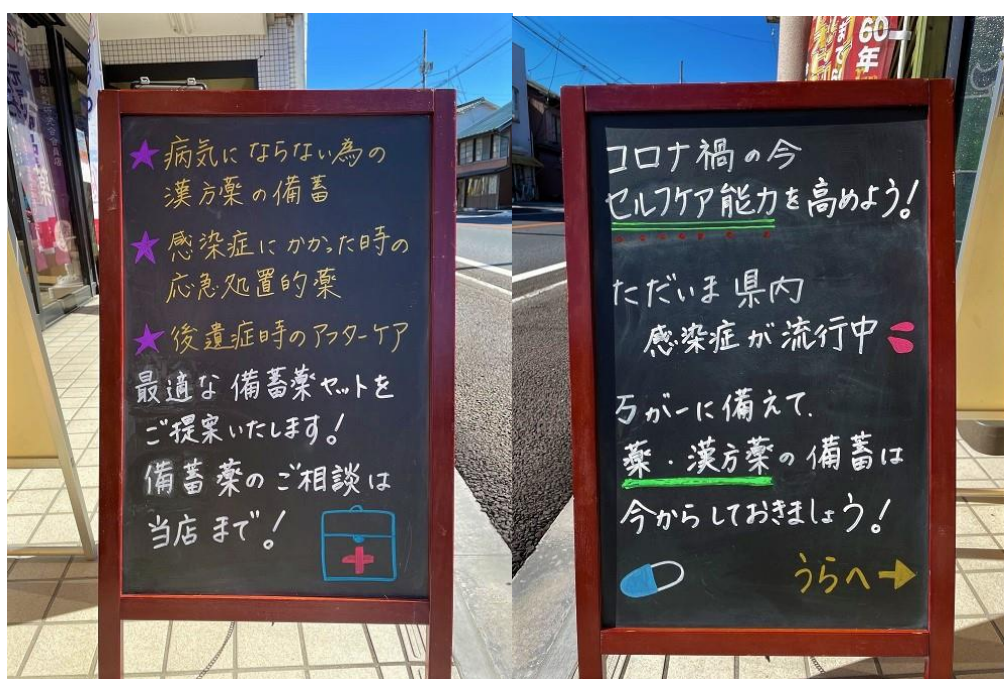 ★病気にならない為の
漢方薬の備蓄
★感染症にかかった時の
応急処置的薬
★後遺症時のアフターケア
最適な備蓄薬セットを
ご提案いたします!
備蓄薬のご相談は
当店まで!
コロナ禍の今
セルフケア能力を高めよう!
ただいま県内
感染症が流行中
万が一に備えて、
薬・漢方薬の備蓄は
今からしておきましょう!
うらへ→
60
年